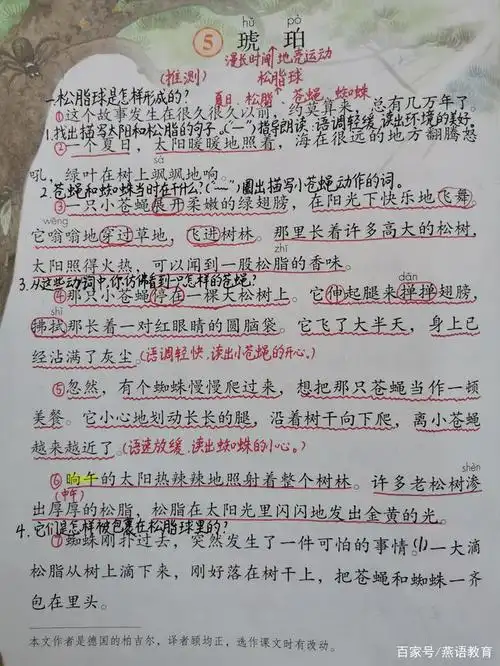 hǔ pò
⑤ 琥珀
漫长时间 地壳运动
(推测) 松脂球
一、松脂球是怎样形成的?
夏日、松脂 苍蝇、蜘蛛
①这个故事发生在很久很久以前,约莫算来,总有几万年了。
1.找出描写太阳和松脂的句子。("—")指导朗读:语调轻缓,读出环境的美好。
②一个夏日,太阳暖暖地照着,海在很远的地方翻腾怒
sà
吼,绿叶在树上飒飒地响。
2.苍蝇和蜘蛛当时在干什么?("﹏")圈出描写小苍蝇动作的词。
③一只小苍蝇展开柔嫩的绿翅膀,在阳光下快乐地飞舞。
wēng
它嗡嗡地穿过草地,飞进树林。那里长着许多高大的松树,
zhī
太阳照得火热,可以闻到一股松脂的香味。
3.从这些动词中,你仿佛看到一只怎样的苍蝇?
dǎn
④那只小苍蝇停在一棵大松树上。它伸起腿来掸掸翅膀,
shì
拂拭那长着一对红眼睛的圆脑袋。它飞了大半天,身上已
经沾满了灰尘。(语调轻快,读出小苍蝇的开心。)
⑤忽然,有个蜘蛛慢慢爬过来,想把那只苍蝇当作一顿
美餐。它小心地划动长长的腿,沿着树干向下爬,离小苍蝇
越来越近了。(语速放缓,读出蜘蛛的小心。)
shèn
⑥晌午的太阳热辣辣地照射着整个树林。许多老松树渗
(中午)
出厚厚的松脂,松脂在太阳光里闪闪地发出金黄的光。
4.它们是怎样被包裹在松脂球里的?
⑦蜘蛛刚扑过去,突然发生了一件可怕的事情。(1)一大滴
松脂从树上滴下来,刚好落在树干上,把苍蝇和蜘蛛一齐
包在里头。
本文作者是德国的柏吉尔,译者顾均正,选作课文时有改动。
百家号/燕语教育